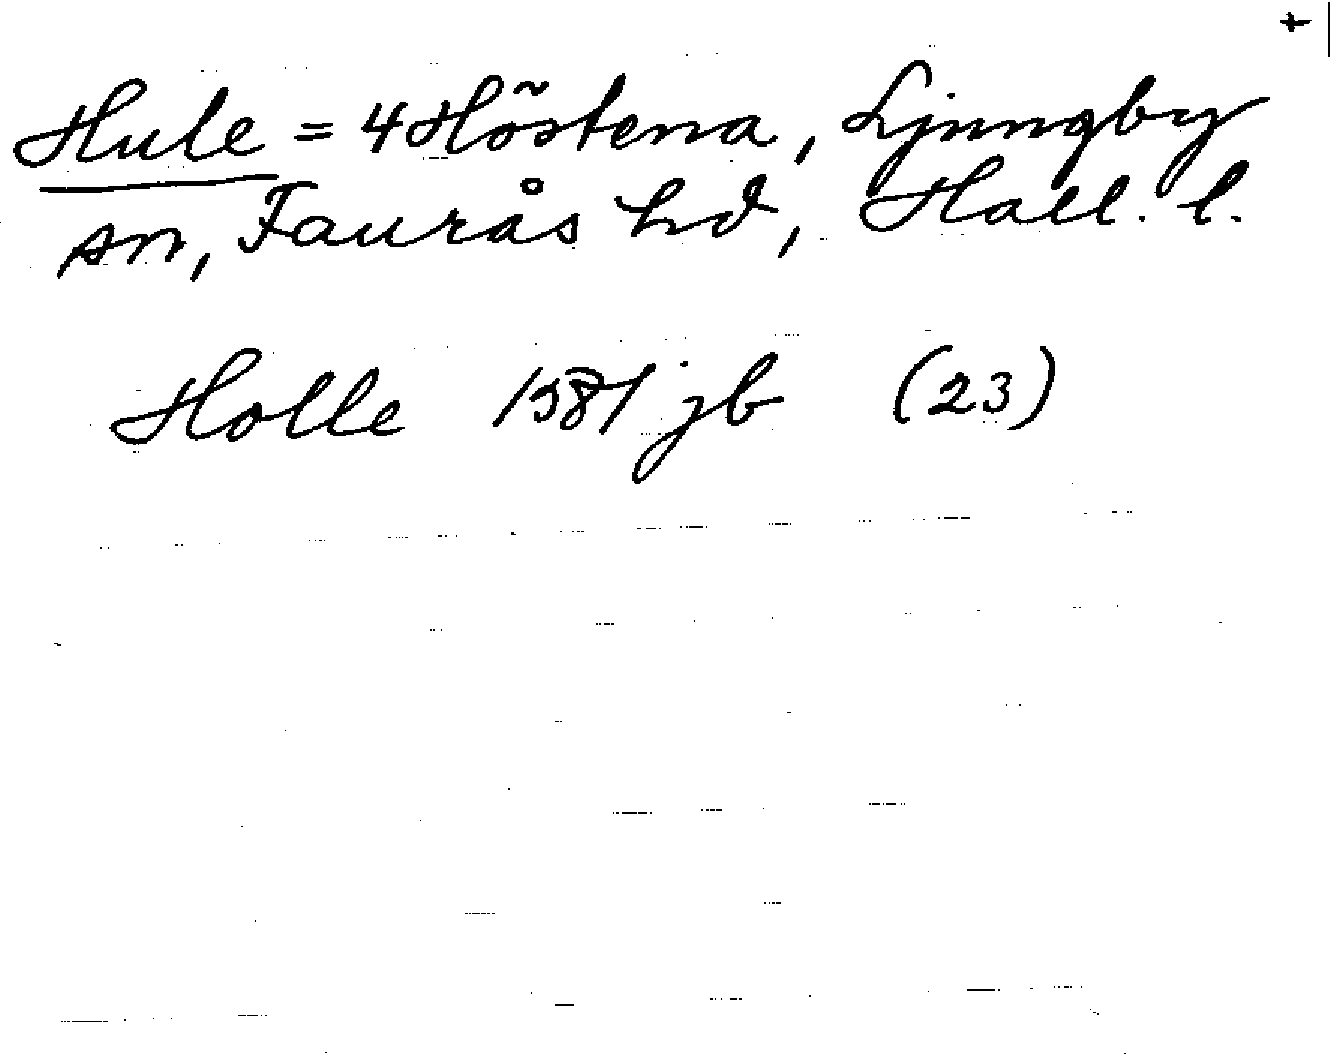 +
Hule = 4 Höstena, Ljungby
sn, Faurås hd, Hall. l.
Holle 1581 jb (23)